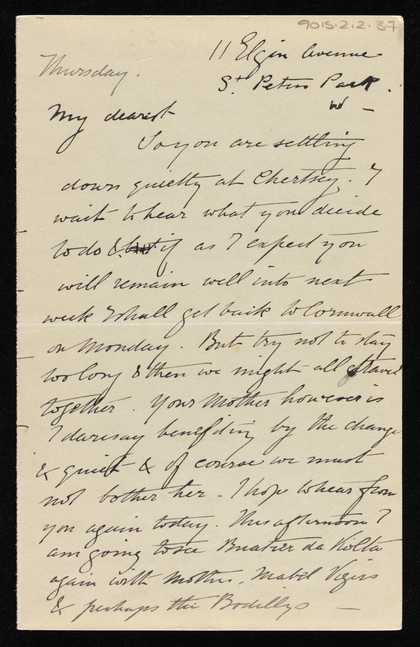 9015-2-2-37
11 Elgin Avenue
Thursday.
St Peters Park.
W —
My dearest
So you are settling
down quietly at Chertsey. I
wait to hear what you decide
to do & if as I expect you
will remain well into next
week I shall get back to Cornwall
on Monday. But try not to stay
too long & then we might all
together. Your Mother however is
I daresay benefiting by the change
& quiet & of course we must
not bother her. I hope to hear from
you again today. This afternoon I
am going to see
again with Mother, Mabel Vigers
& perhaps the Bodillys —